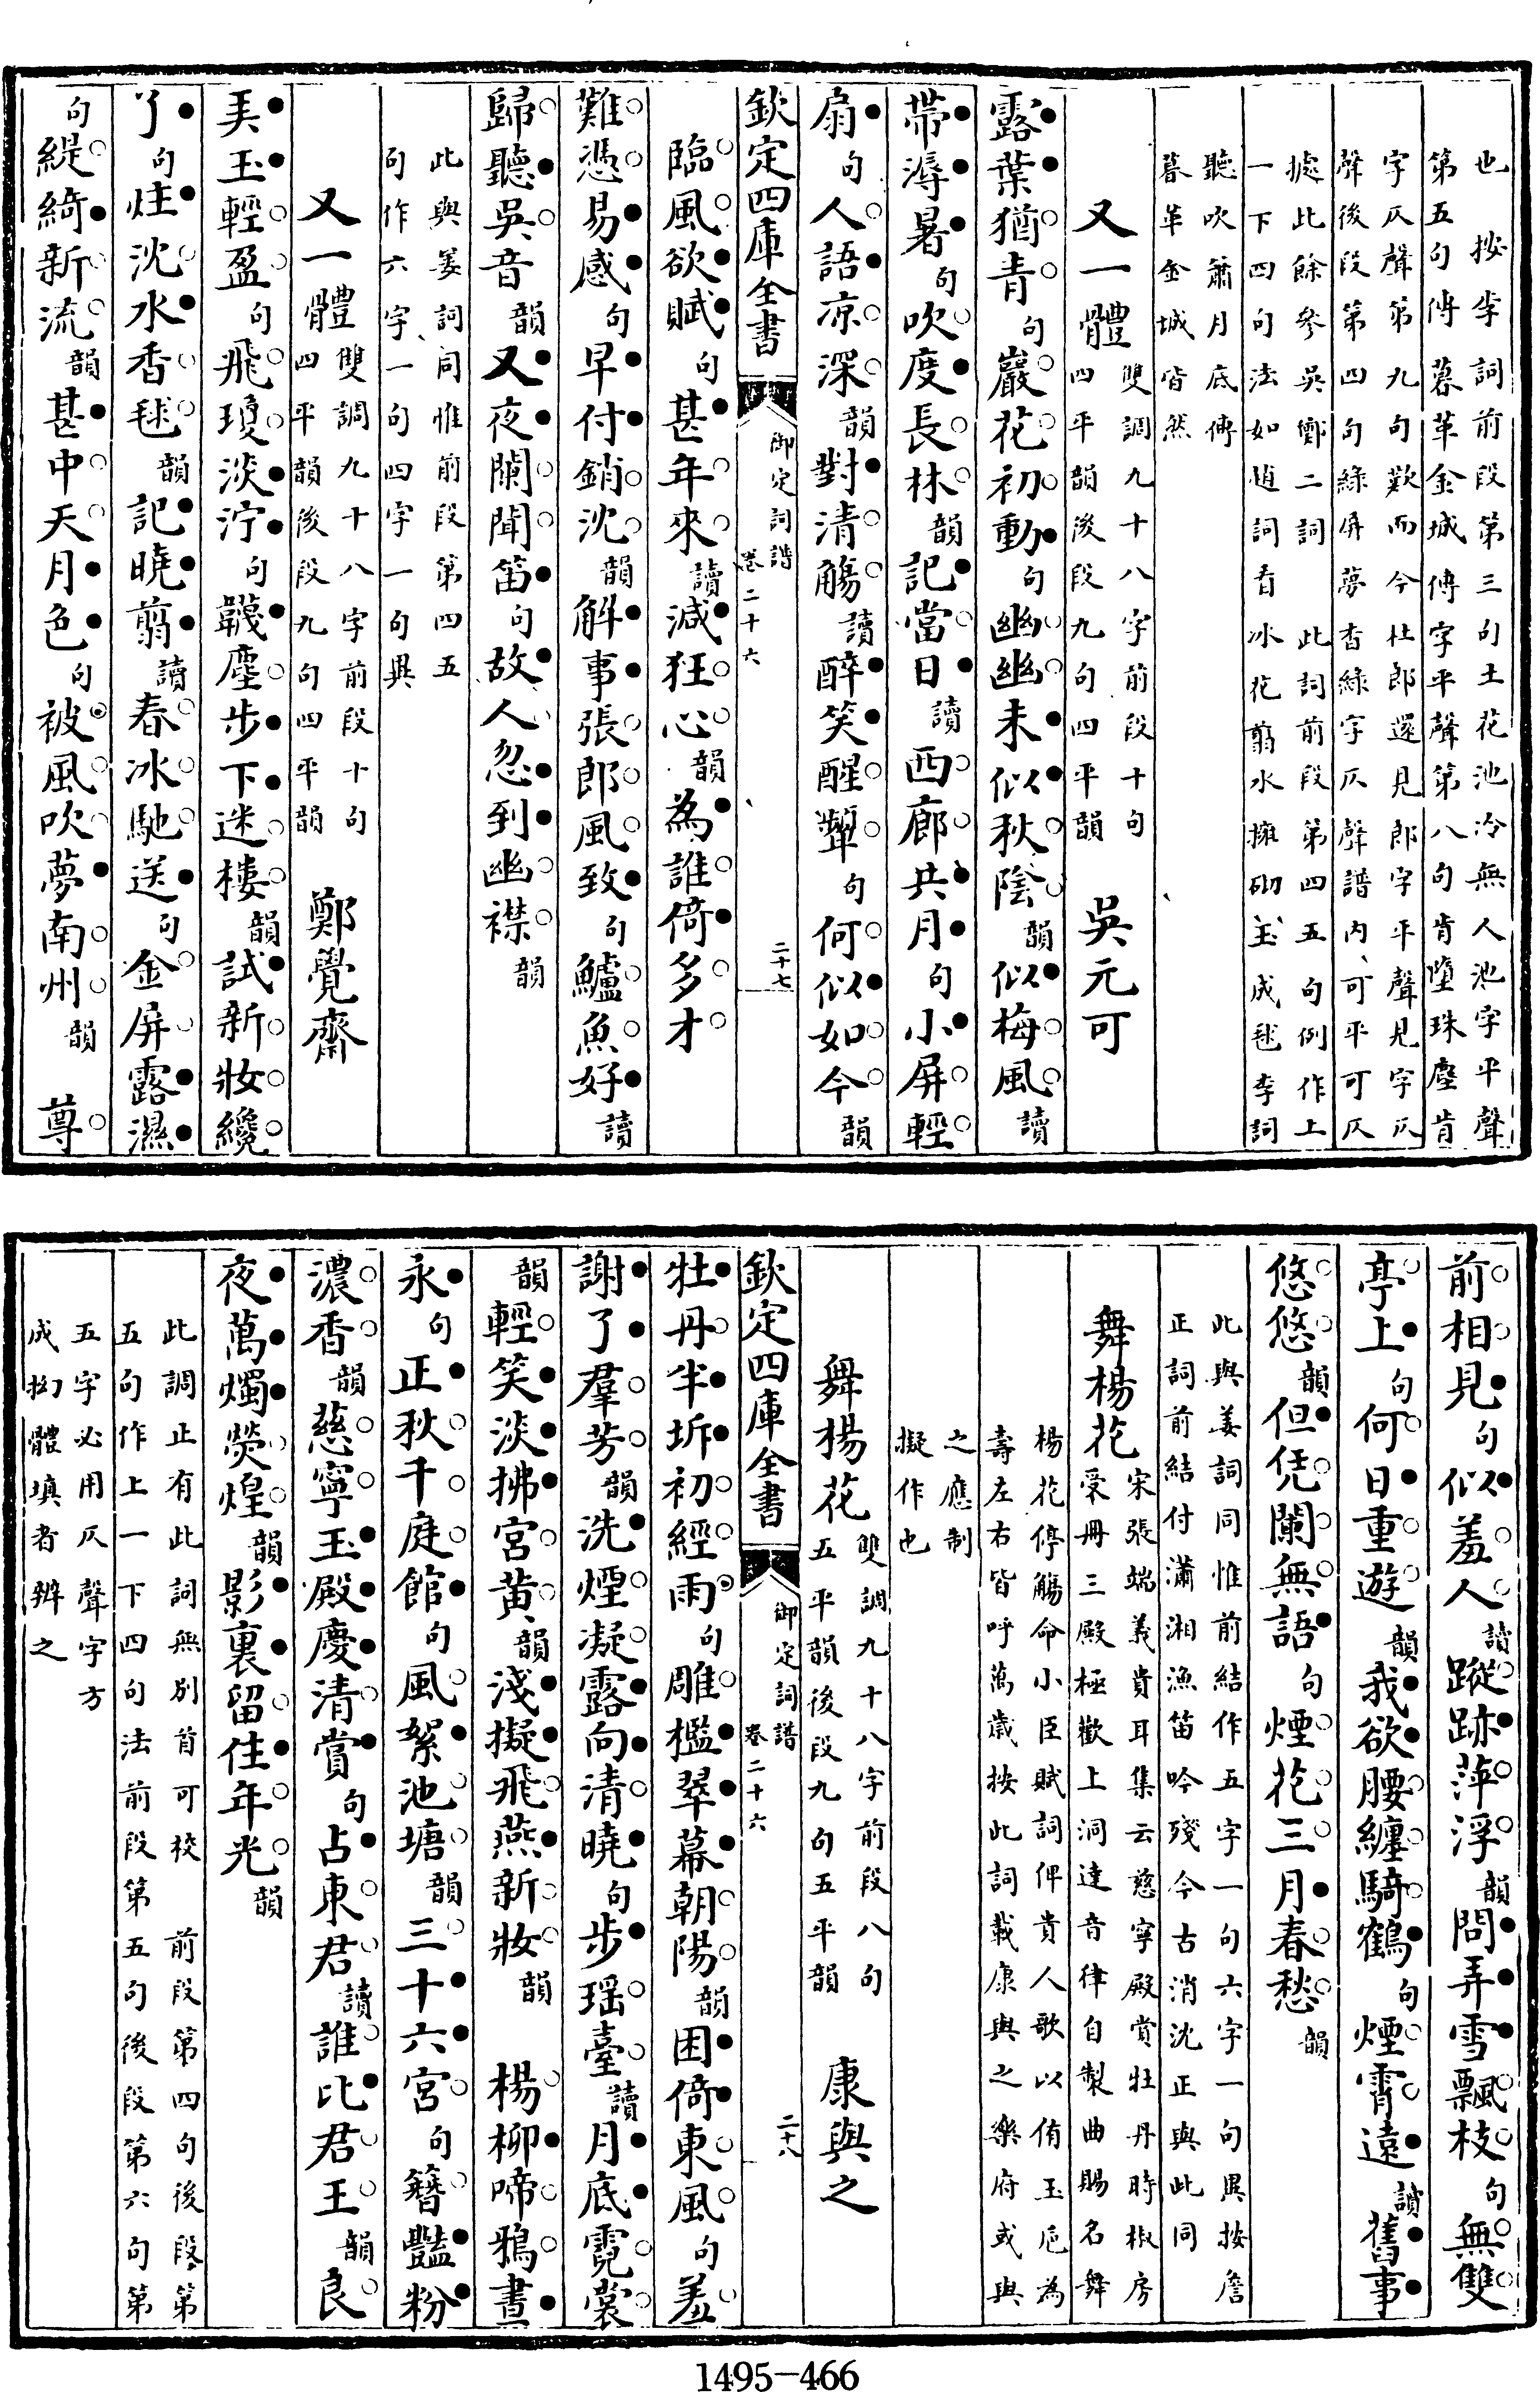 也　按李詞前段第三句土花池冷無人池字平聲
第五句傅　暮革金城傅字平聲第八句肯墮珠塵肯
字仄聲第九句歎而今杜郎還見郎字平聲見字仄
聲後段第四句綠屏夢杳綠字仄聲譜內可平可仄
據此餘參吳鄭二詞　此詞前段第四五句例作上
一下四句法如趙詞看冰花翦水擁砌玉成毬李詞
聽吹簫月底傳
暮革金城皆然
又一體 雙調九十八字前段十句
四平韻後段九句四平韻 吳元可
露葉猶青句巖花初動句幽幽未似秋陰韻似梅風讀
帶溽暑句吹度長林韻記當日讀西廊共月句小屏輕
扇句人語涼深韻對清觴讀醉笑醒顰句何似如今韻
欽定四庫全書　御定詞譜　卷二十六　二十七
臨風欲賦句甚年來讀減狂心韻為誰倚多才
難憑易感句早付銷沈韻解事張郎風致句鱸魚好讀
歸聽吳音韻又夜闌聞笛句故人忽到幽襟韻
此與姜詞同惟前段第四五
句作六字一句四字一句異
又一體 雙調九十八字前段十句
四平韻後段九句四平韻 鄭覺齋
美玉輕盈句飛瓊淡濘句韈塵步下迷樓韻試新妝纔
了句炷沈水香毬韻記曉翦讀春冰馳送句金屏露濕
句緹綺新流韻甚中天月色句被風吹夢南州韻　尊
前相見句似羞人讀蹤跡萍浮韻問弄雪飄枝句無雙
亭上句何日重遊韻我欲腰纏騎鶴句煙霄遠讀舊事
悠悠韻但凭闌無語句煙花三月春愁韻
此與姜詞同惟前結作五字一句六字一句異按詹
正詞前結付瀟湘漁笛吟殘今古消沈正與此同
舞楊花 宋張端義貴耳集云慈寧殿賞牡丹時椒房
受冊三殿極歡上洞達音律自製曲賜名舞
楊花停觴命小臣賦詞俾貴人歌以侑玉卮為
壽左右皆呼萬歲按此詞載康與之樂府或與
之應制
擬作也
舞楊花 雙調九十八字前段八句
五平韻後段九句五平韻 康與之
欽定四庫全書　御定詞譜　卷二十六　二十八
牡丹半坼初經雨句雕檻翠幕朝陽韻困倚東風句羞
謝了羣芳韻洗煙凝露向清曉句步瑶臺讀月底霓裳
韻輕笑淡拂宮黃韻淺擬飛燕新妝韻　楊柳啼鴉晝
永句正秋千庭館句風絮池塘韻三十六宮句簪豔粉
濃香韻慈寧玉殿慶清賞句占東君讀誰比君王韻良
夜萬燭熒煌韻影裏留住年光韻
此調止有此詞無別首可校　前段第四句後段第
五句作上一下四句法前段第五句後段第六句第
五字必用仄聲字方
成拗體填者辨之
1495-466